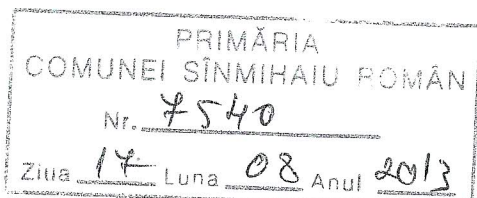 PRIMĂRIA
COMUNEI SÎNMIHAIU ROMÂN
Nr. 7540
Ziua 17 Luna 08 Anul 2013